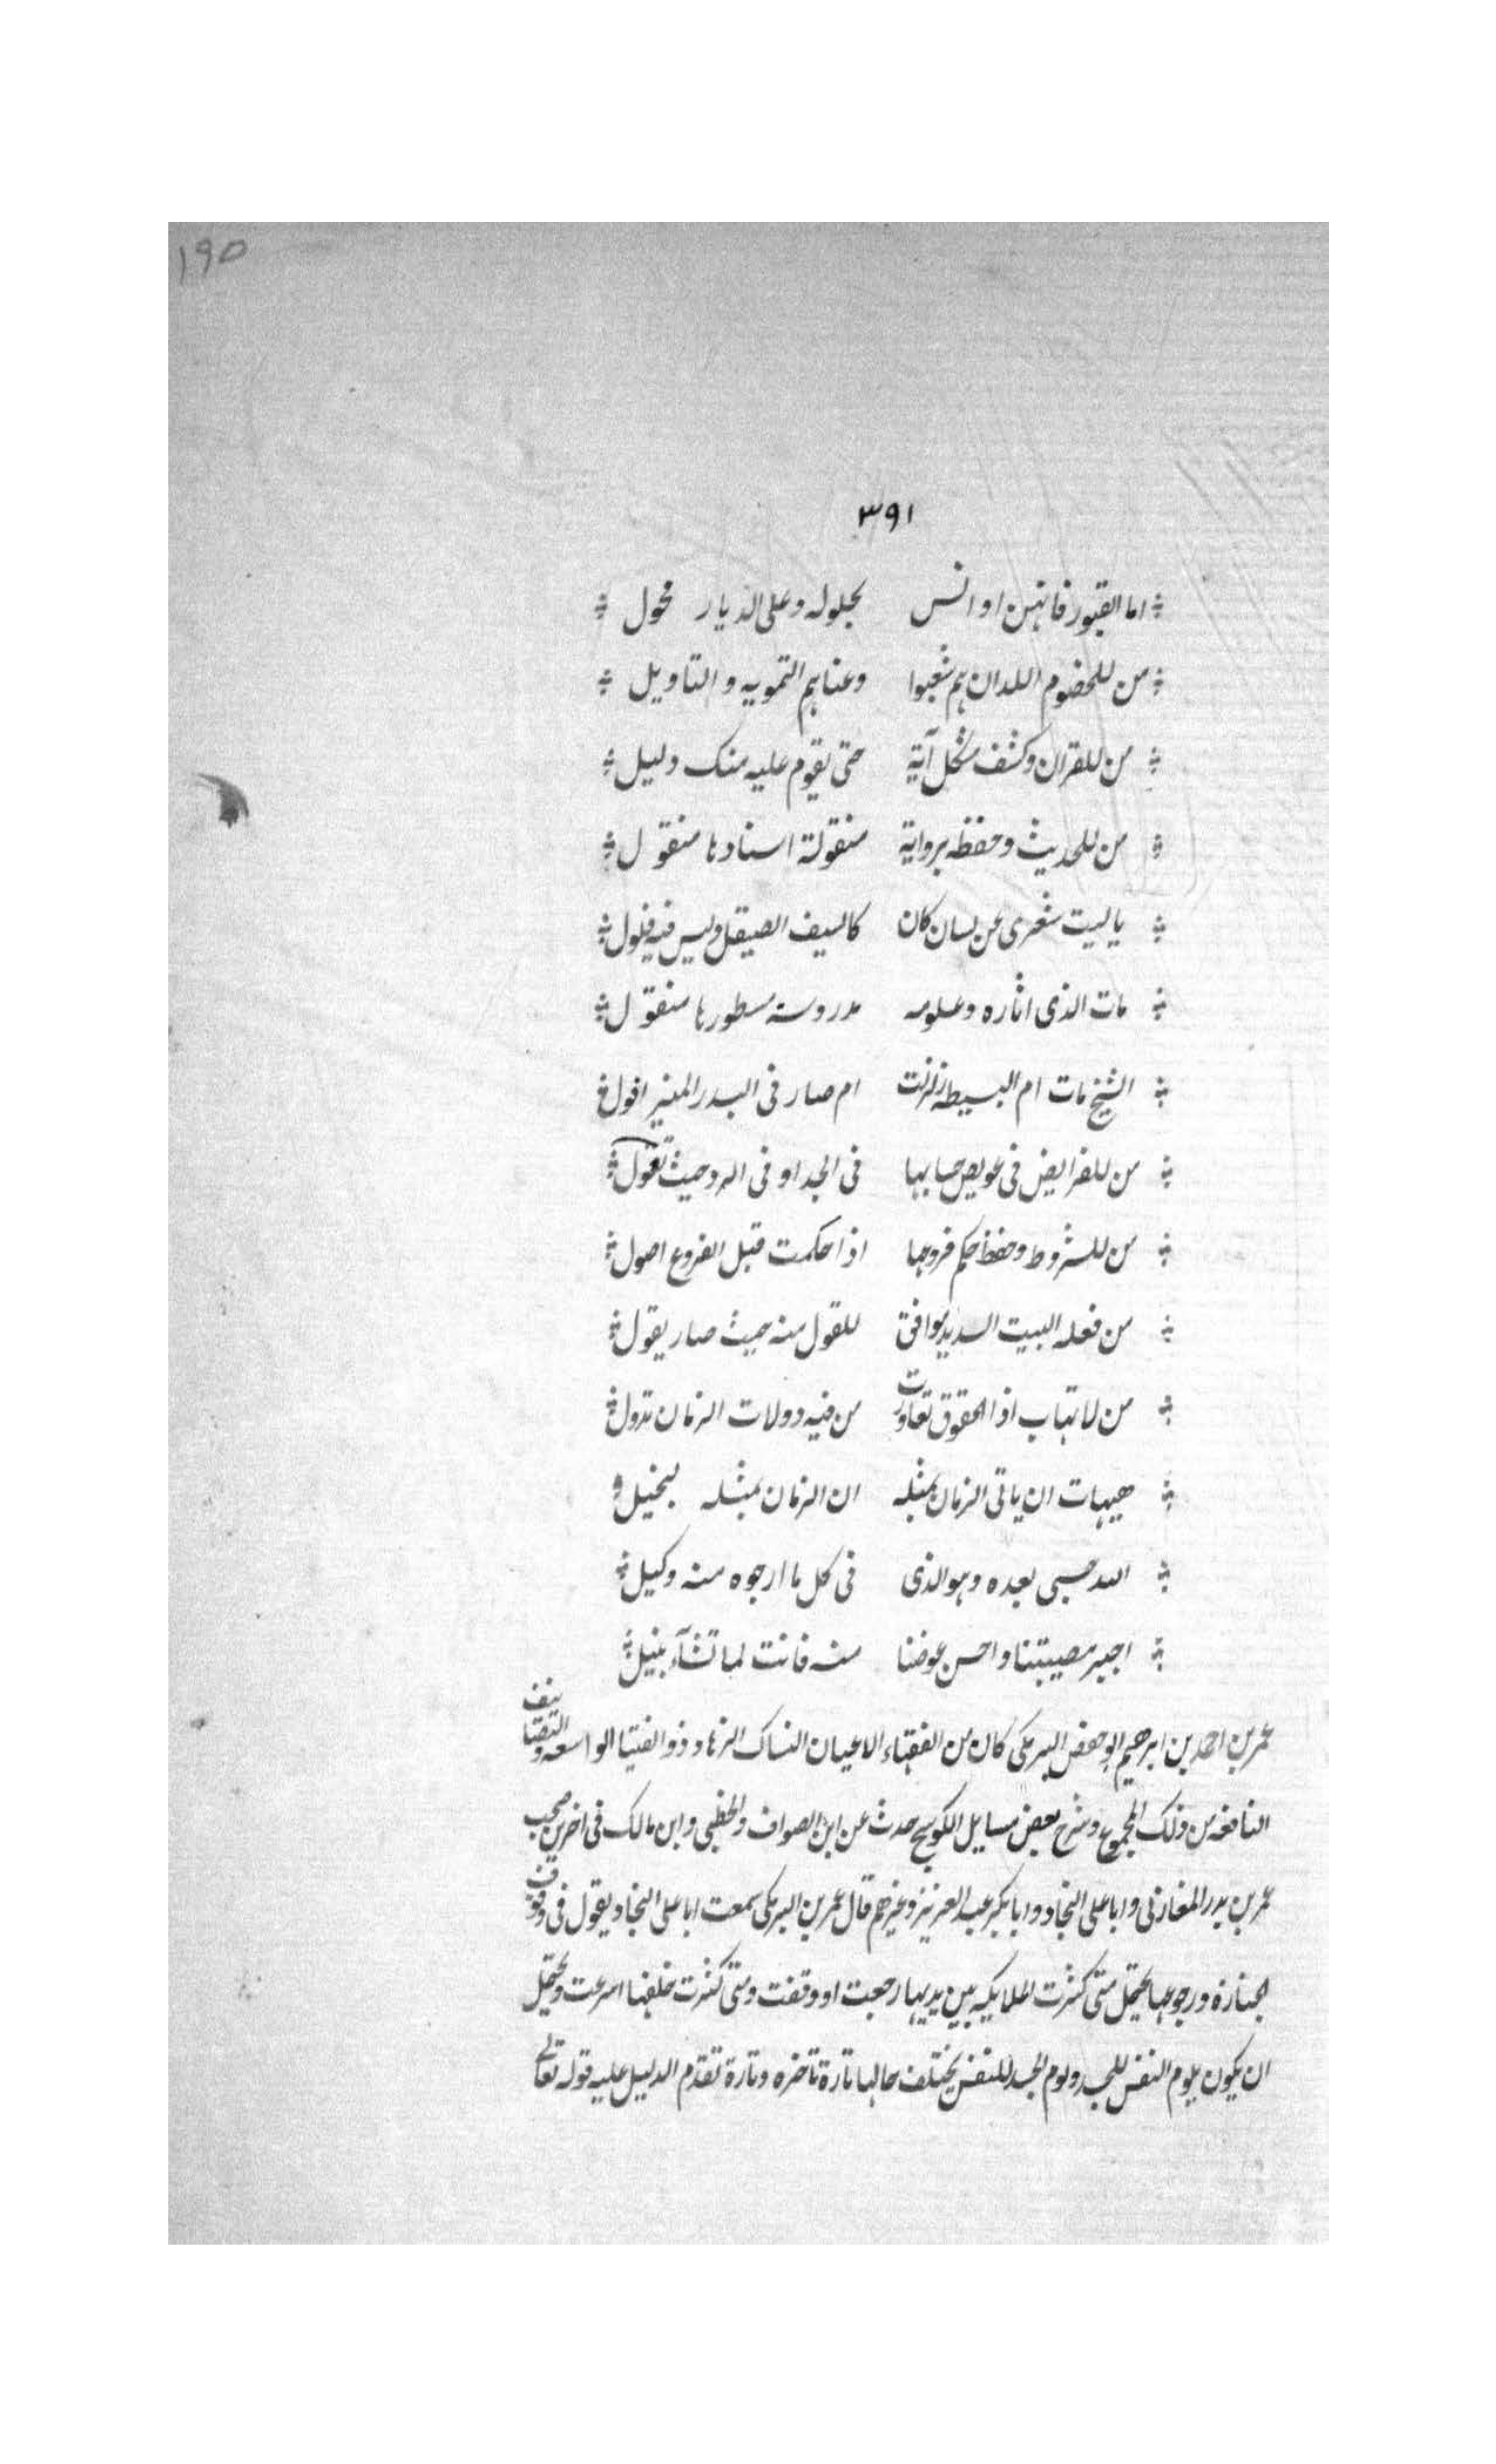 ١٩٥
٣٩١
اما القبور فانهن اوانس بحلوله وعلى الديار محول
من للخضوم اللدان هم شغبوا وعناهم التمويه والتاويل
من للقران وكشف مشكل آية حتى يقوم عليه منك دليل
من للحديث وحفظه برواية منقولة اسنادها منقول
يا ليت شعرى عن لسان كان كالسيف الصيقل وليس فيه فلول
مات الذى اثاره وعلومه مدروسة مسطورها منقول
الشيخ مات ام البسيطه زلزلت ام صار فى البدر المنير افول
من للفرايض فى عويص حسابها فى الجد او فى الرد حيث تعول
من للشروط وحفظ حكم فروعها اذ احكمت قبل الفروع اصول
من فعله البيت السديد موافق للقول منه حيث صار يقول
من لا تهاب اذا الحقوق تعاورت من فيه دولات الزمان تدول
هيهات ان ياتى الزمان بمثله ان الزمان بمثله لبخيل
الله حسبى بعده وهو الذى فى كل ما ارجوه منه وكيل
اجبر مصيبتنا واحسن عوضنا منه فانت لما تشآء بنيل
عمر بن احمد بن ابرهيم ابو حفص البرمكى كان من الفقهاء الاعيان النساك الزهاد ذو الفتيا الواسعه والتصانيف
النافعه من ذلك المجموع وشرح بعض مسايل الكوسج حدث عن ابن الصواف والخطبى وابن مالك فى اخرين صحب
عمر بن بدر المغازلى وابا على النجاد وابا بكر عبد العزيز وغيرهم قال عمر بن البرمكى سمعت ابا على النجاد يقول فى وقوف
الجنازة ورجوعها يحتمل متى كثرت الملايكه بين يديها رجعت او وقفت ومتى كثرت خلفها اسرعت ويحتمل
ان يكون يلوم النفس للجسد ولوم الجسد للنفس يختلف حالها تارة تاخره وتارة تقدم الدليل عليه قوله تعالى